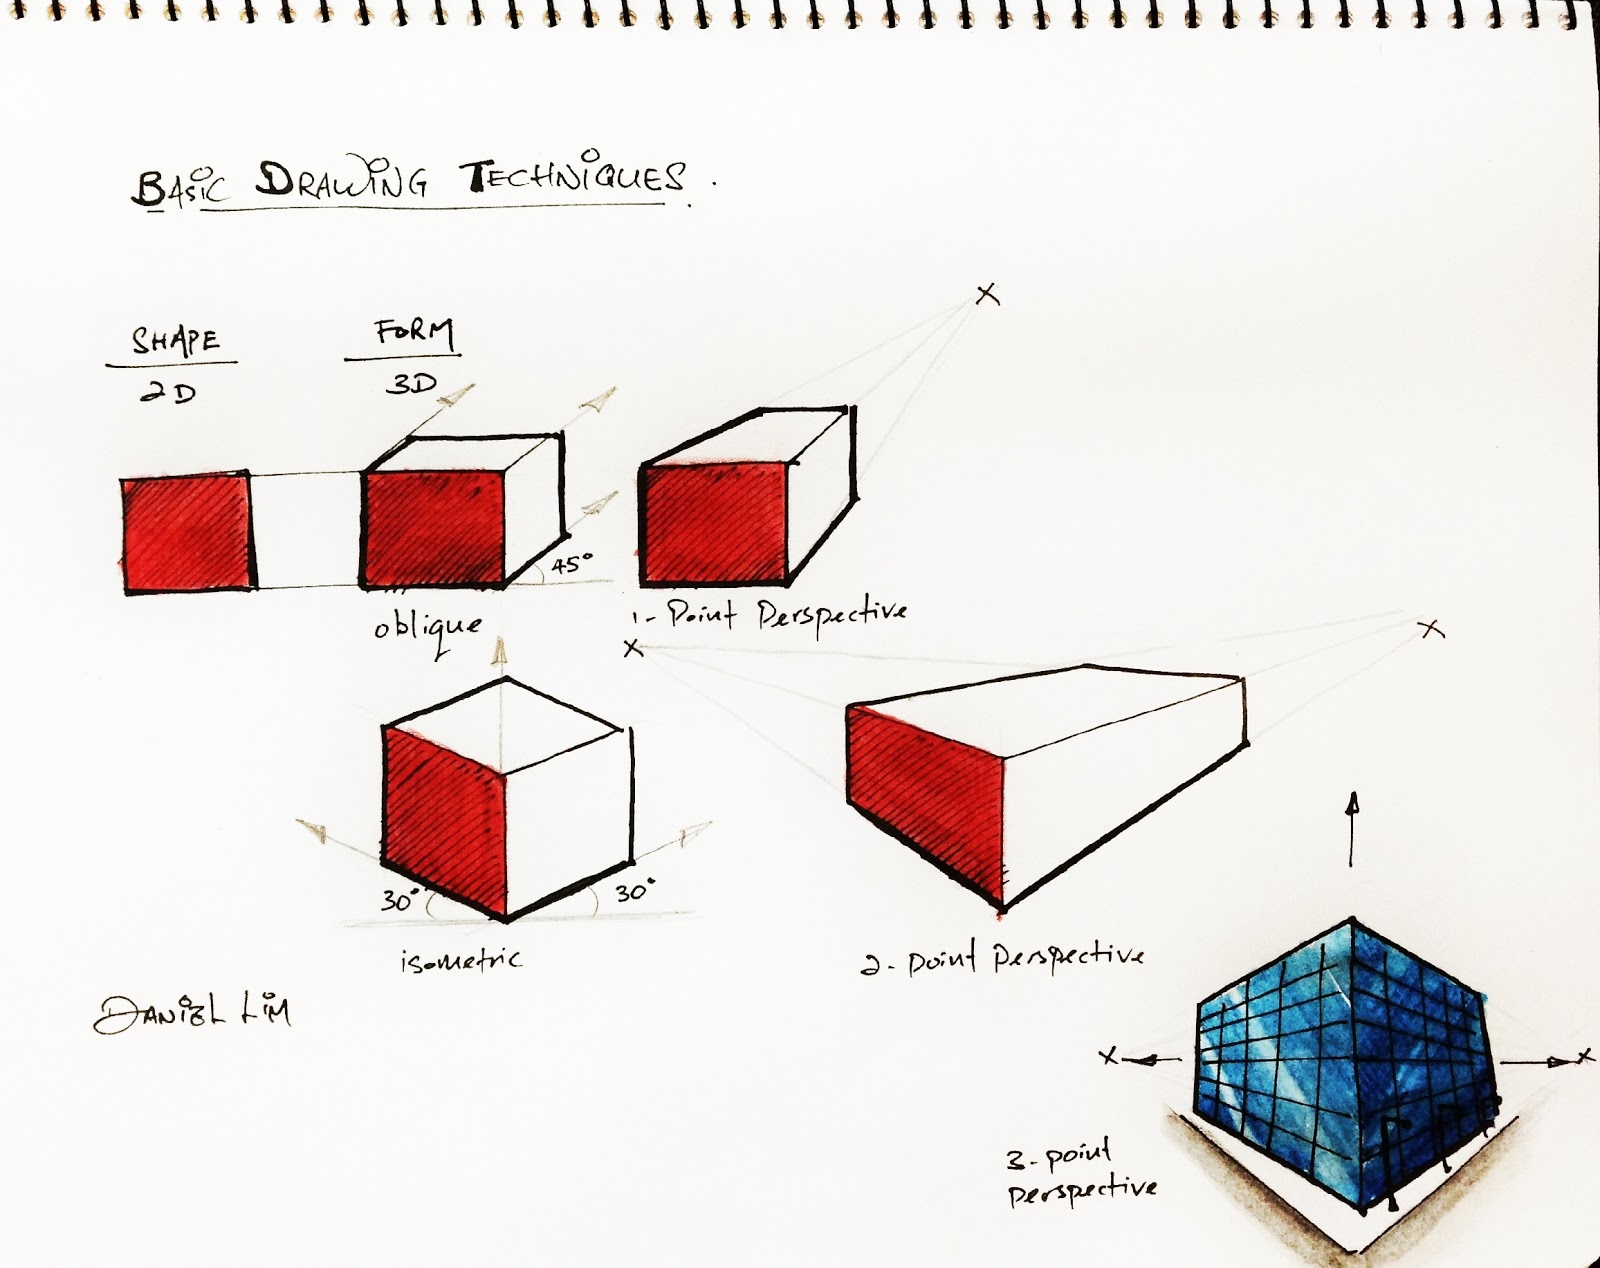 BASIC DRAWING TECHNIQUES.
SHAPE
2D
FORM
3D
X
45°
oblique
1-Point Perspective
X
X
30°
30°
isometric
2-point Perspective
DANIEL LIM
X
X
3-point
perspective